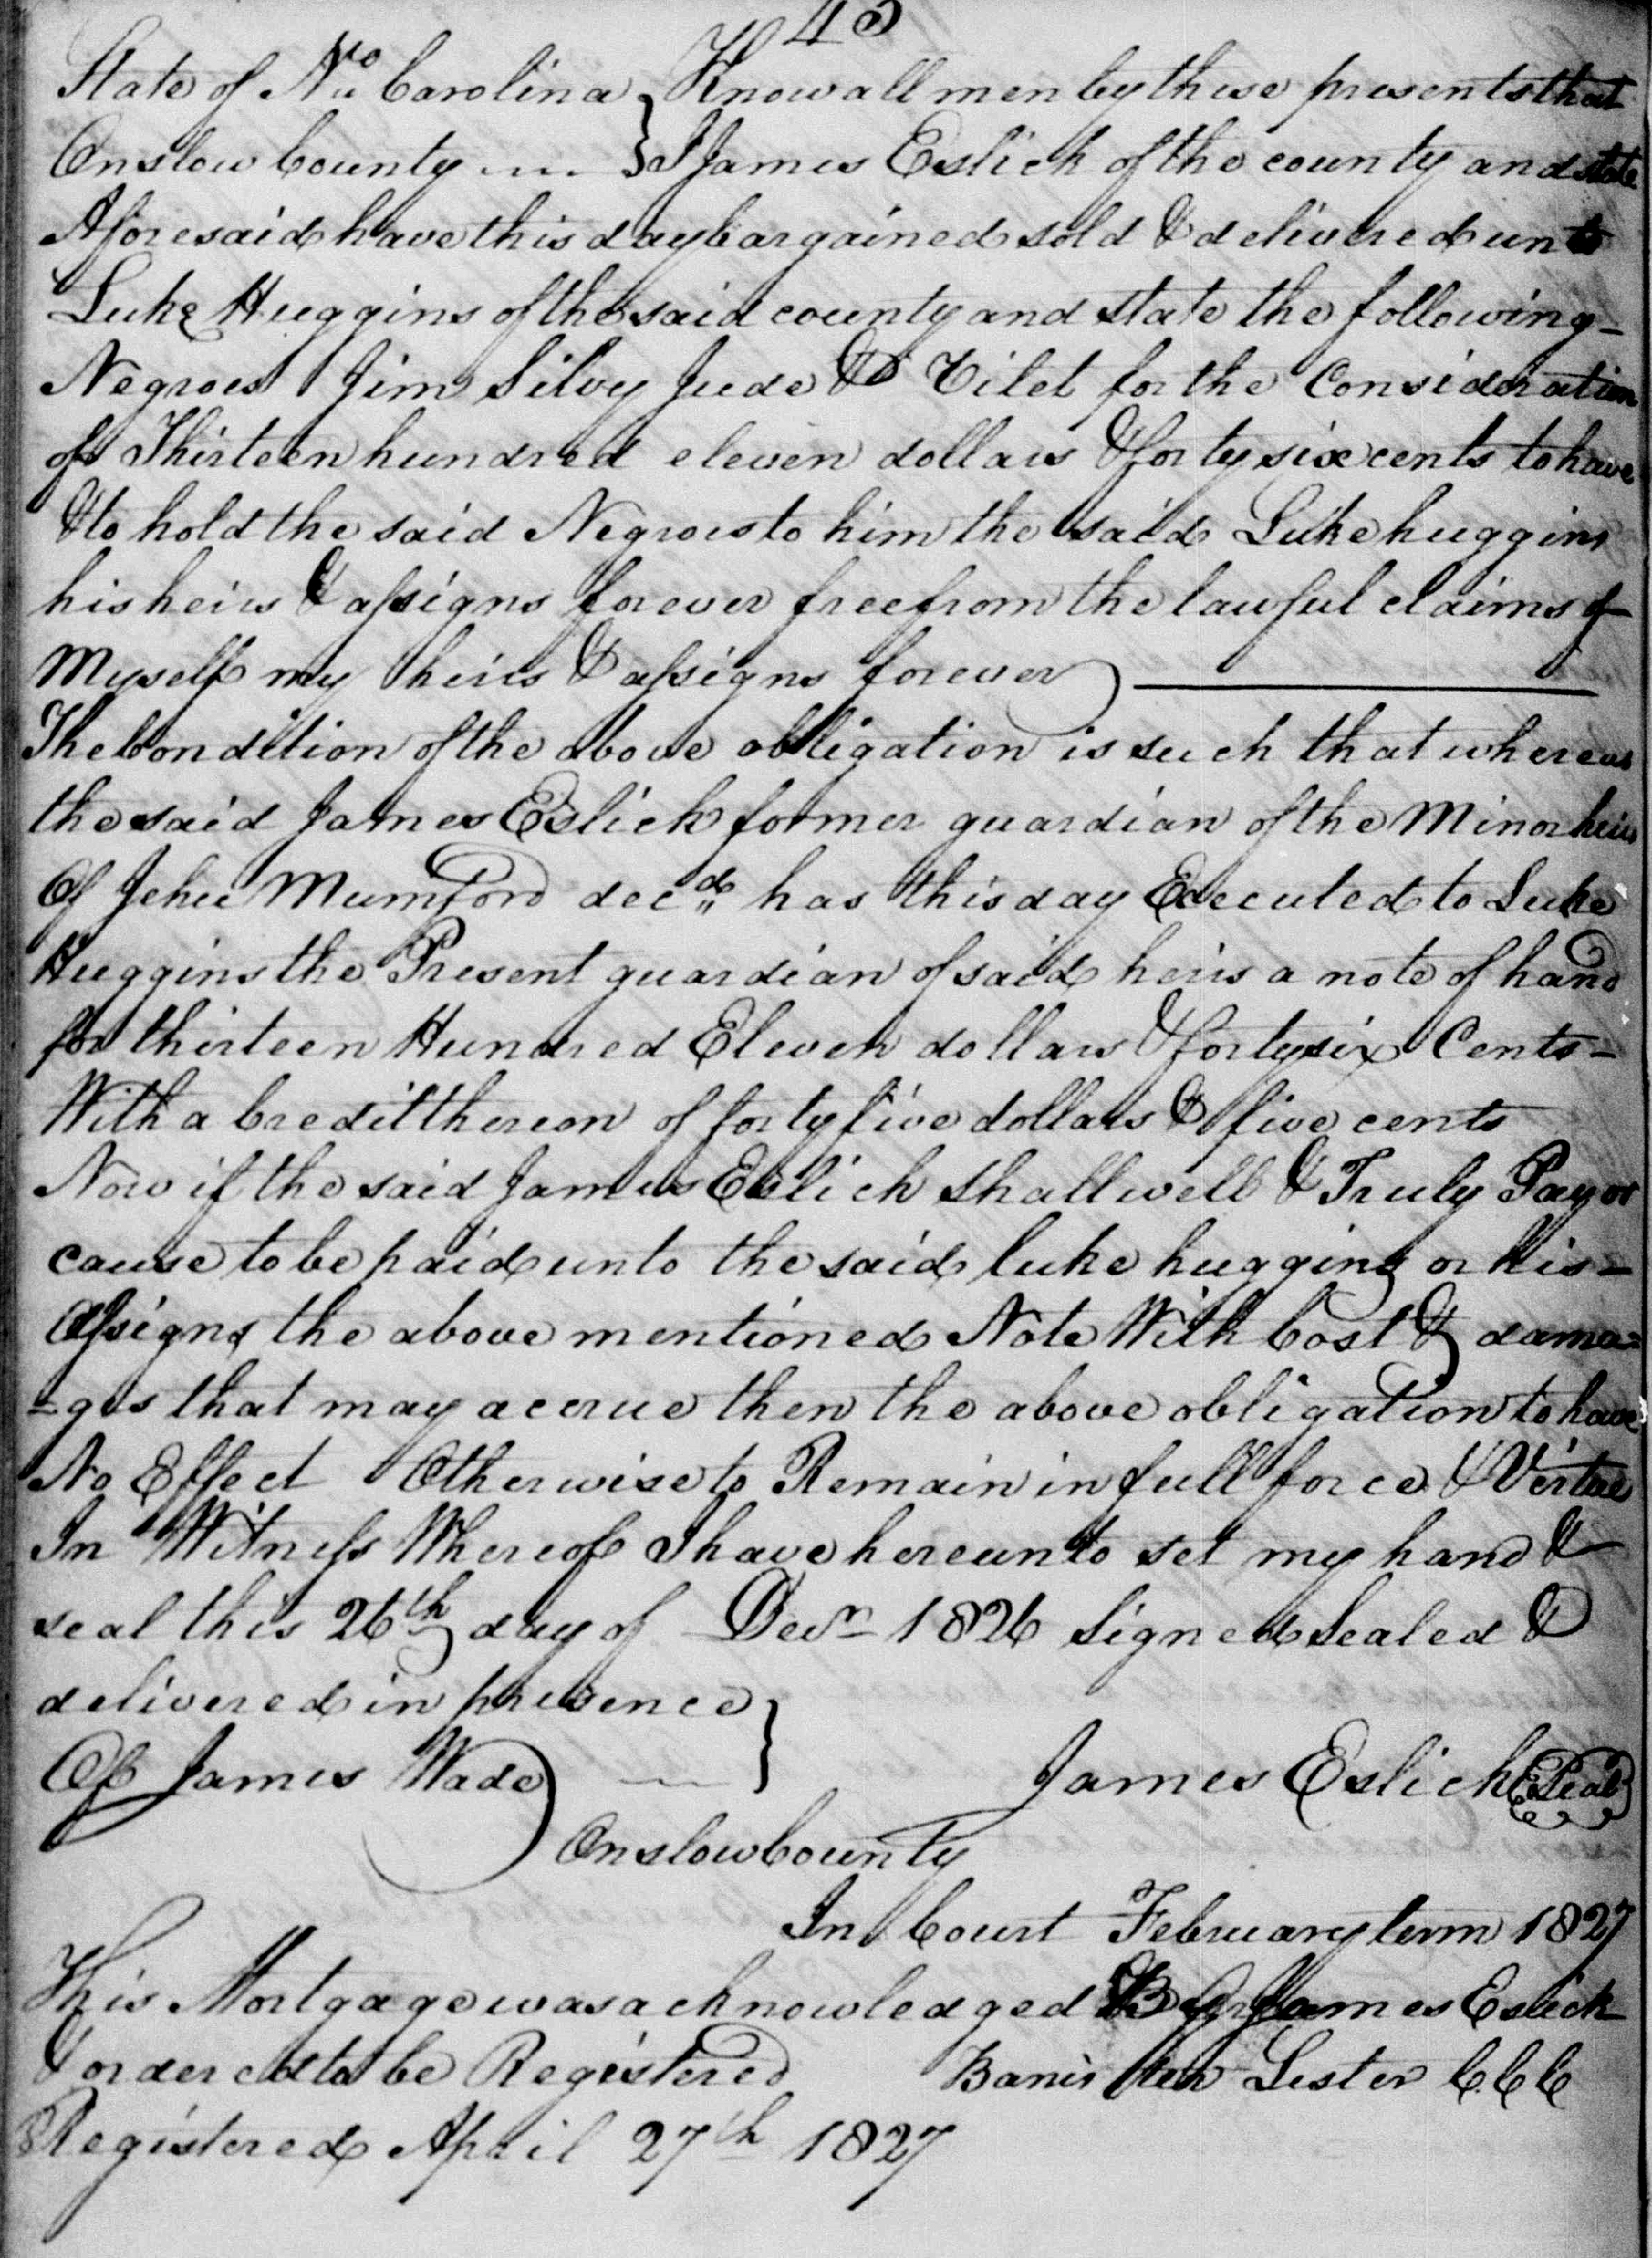 43
State of No Carolina } Know all men by these presents that
Onslow County .... } I James Eslick of the county and state
Aforesaid have this day bargained sold & delivered unto
Luke Huggins of the said county and state the following -
Negroes Jim Silvy Jude & Vilet for the Consideration
of Thirteen hundred eleven dollars & forty six cents to have
& to hold the said Negroes to him the said Luke huggins
his heirs & assigns forever free from the lawful claims of
Myself my heirs & assigns forever
The Condition of the above obligation is such that whereas
the said James Eslick former guardian of the Minor heirs
Of Jehu Mumford decd has this day Executed to Luke
Huggins the Present guardian of said heirs a note of hand
for thirteen Hundred Eleven dollars & forty six Cents -
With a Credit thereon of forty five dollars & five cents
Now if the said James Eslick shall well & Truly Pay or
cause to be paid unto the said luke huggins or his =
Assigns the above mentioned Note With Cost & dama=
=ges that may accrue then the above obligation to have
No Effect Otherwise to Remain in full force & Virtue
In Witness Whereof I have hereunto set my hand &
seal this 26th day of Decr 1826 Signed Sealed &
delivered in presence }
Of James Wade } James Eslick (Seal)
Onslow County
In Court February term 1827
This Mortgage was acknowledged By James Eslick
& ordered to be Registered Banister Lester C.C.C
Registered April 27th 1827